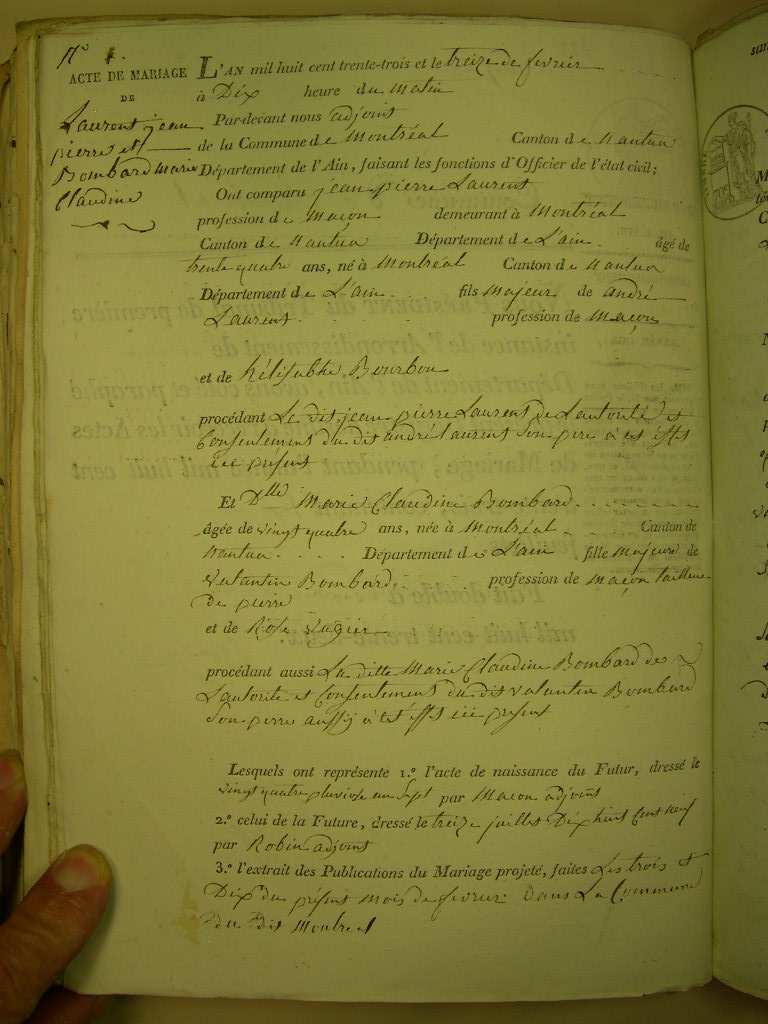 N.o 1.
ACTE DE MARIAGE
DE
Laurent jean
pierre et
Bombard marie
Claudine
L'AN mil huit cent trente-trois et le treize de fevrier
à Dix heure du matin
Par-devant nous adjoint
de la Commune de Montréal Canton de Nantua
Département de l'Ain, faisant les fonctions d'Officier de l'état civil;
Ont comparu jean pierre Laurent
profession de maçon demeurant à Montréal
Canton de Nantua Département de L'ain. âgé de
trente quatre ans, né à Montréal Canton de Nantua
Département de L'ain fils Majeur de andré
Laurent. profession de maçon
et de hélisabhe Bourbon
procédant Le dit jean pierre Laurent de Lautorité et
Consentement du dit andré laurent Son pere à cet effet
ici présent
Et Dlle Marie Claudine Bombard
âgée de vingt quatre ans, née à Montréal Canton de
Nantua Département de L'ain fille majeure de
Valantin Bombard. profession de maçon tailleur
de pierre
et de Rose
procédant aussi La ditte Marie Claudine Bombard de
Lautorité et Consentement du dit Valantin Bombard
Son perre aussy à cet effet ici présent
Lesquels ont représenté 1.º l'acte de naissance du Futur, dressé le
vingt quatre pluviose an Sept par Macon adjoint
2.º celui de la Future, dressé le treize juillet Dix huit Cent neuf
par Robin adjoint
3.º l'extrait des Publications du Mariage projeté, faites Les trois et
Dix du présent mois de fevrier Dans La Commune
du dit Montreal